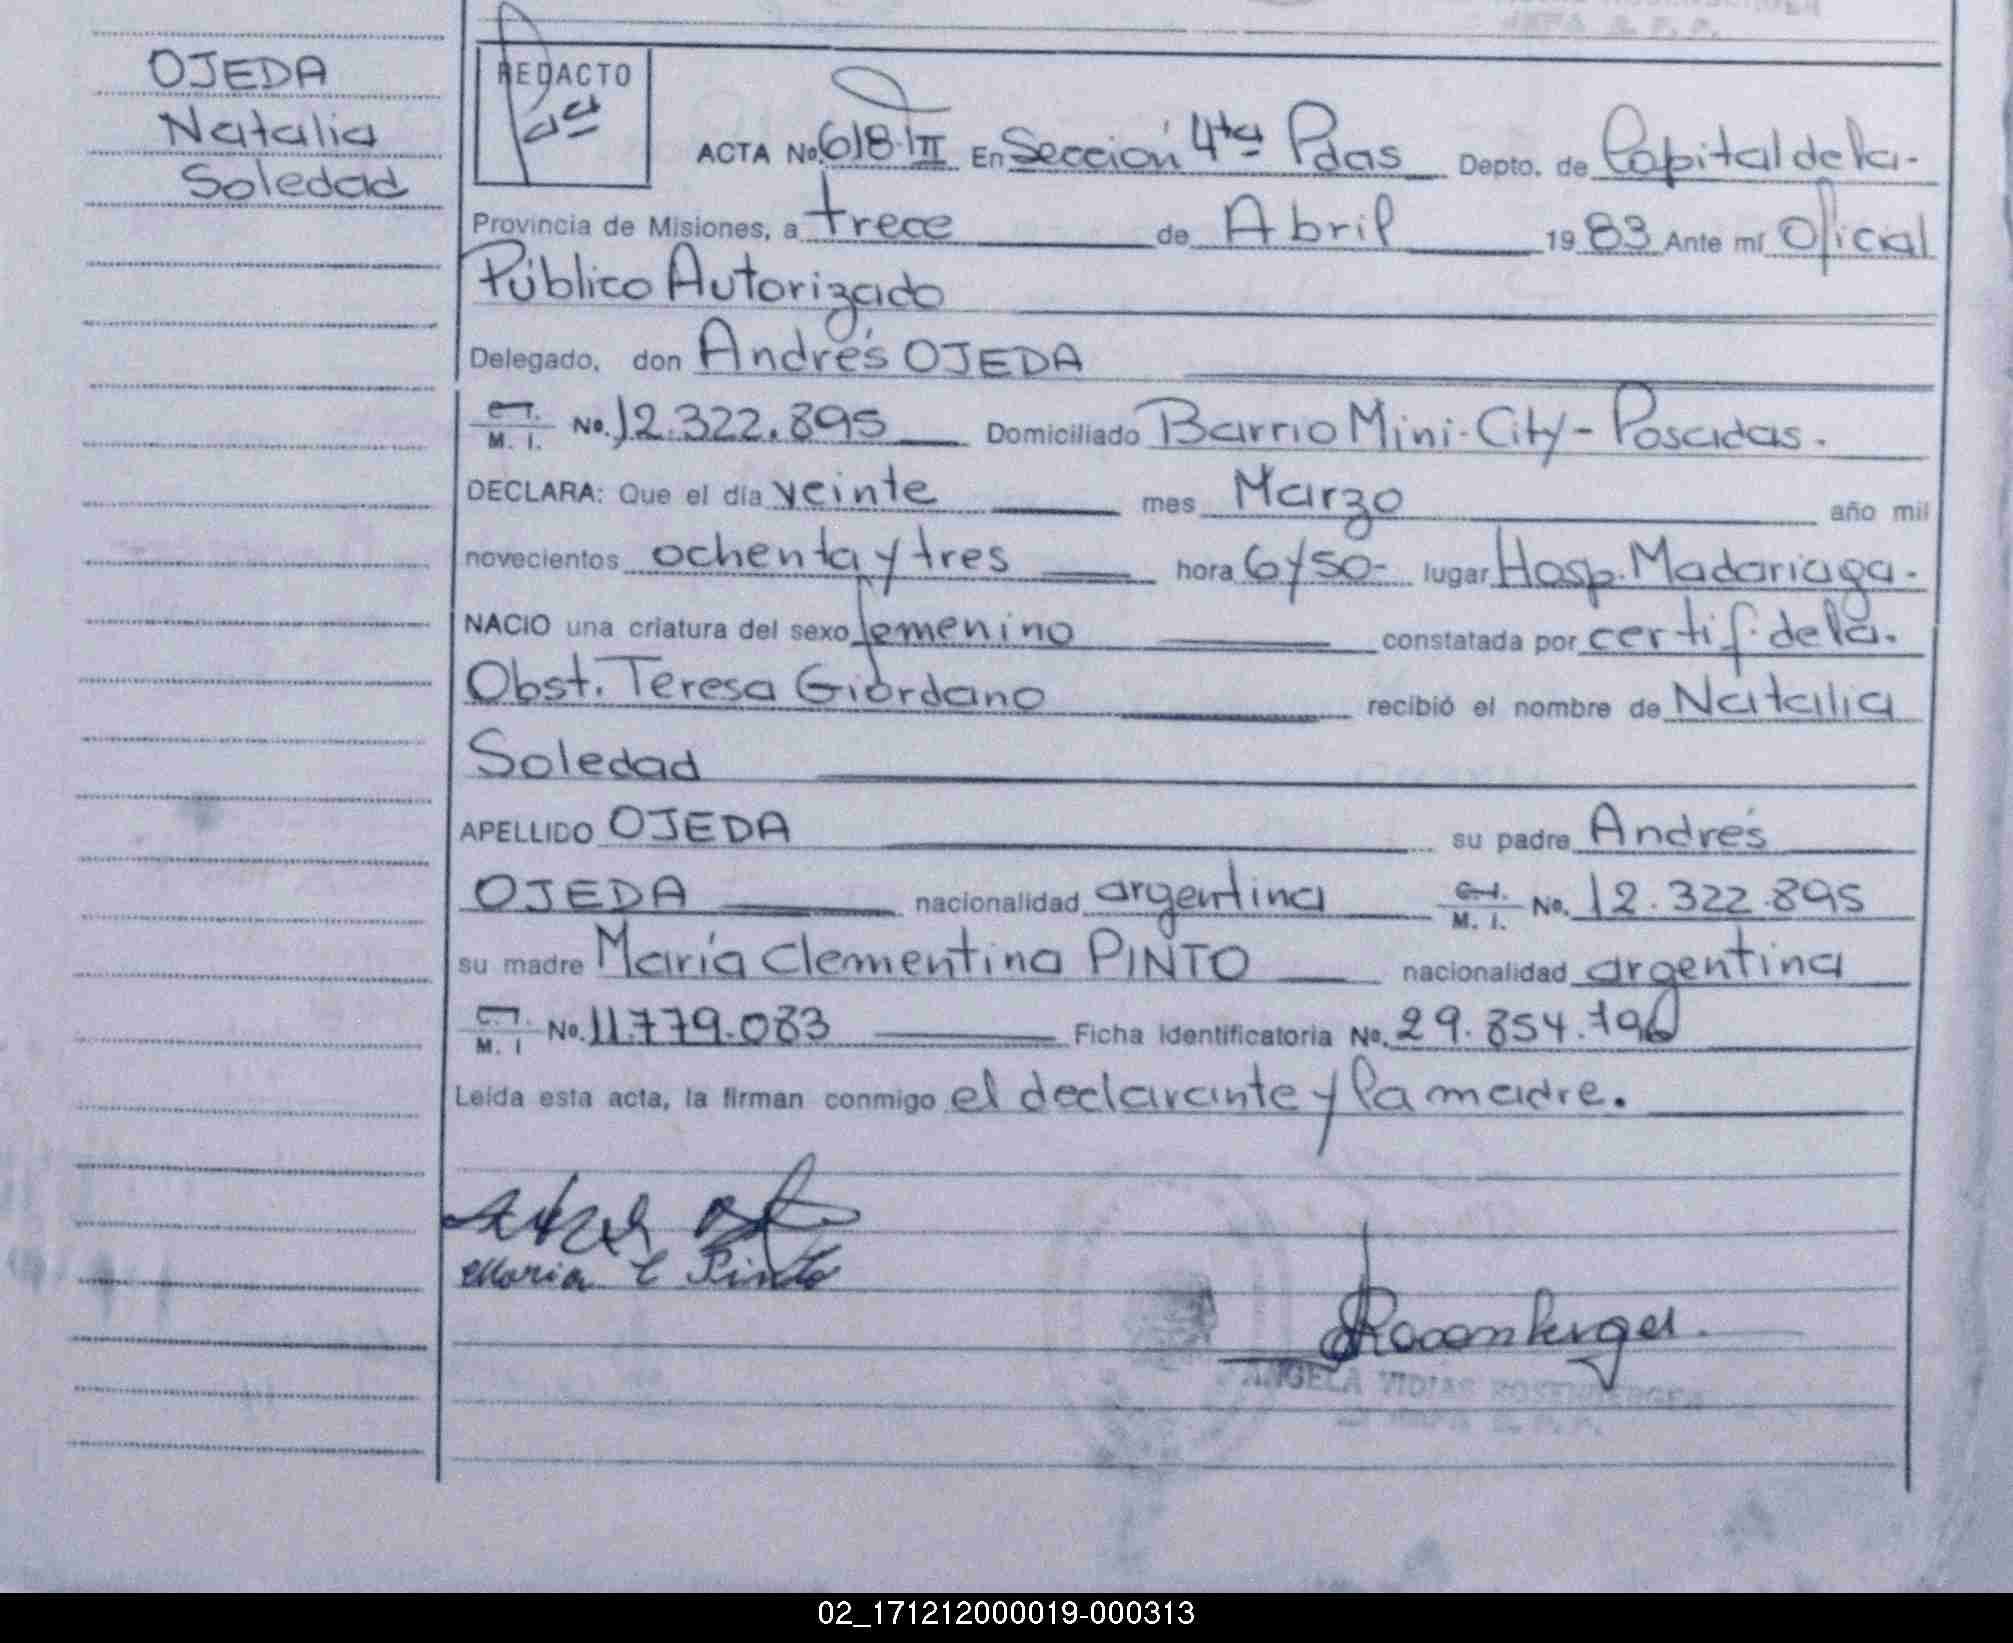 OJEDA
Natalia
Soledad
REDACTO
ACTA No. 618-III En Sección 4ta Pdas Depto. de Capital de la.
Provincia de Misiones, a trece de Abril 1983 Ante mí Oficial
Público Autorizado
Delegado, don Andrés OJEDA
C. I.
M. I. No. 12.322.895 Domiciliado Barrio Mini-City - Posadas.
DECLARA: Que el día veinte mes Marzo año mil
novecientos ochenta y tres hora 6y50- lugar Hosp. Madariaga.
NACIO una criatura del sexo femenino constatada por certif. de la.
Obst. Teresa Giordano recibió el nombre de Natalia
Soledad
APELLIDO OJEDA su padre Andrés
OJEDA nacionalidad argentina C. I. M. I. No. 12.322.895
su madre María Clementina PINTO nacionalidad argentina
C. I. M. I No. 11.779.083 Ficha Identificatoria No. 29.854.796
Leída esta acta, la firman conmigo el declarante y la madre.
Maria C Pinto
Rosenberger
ANGELA VIDIAS ROSENBERGER
02_171212000019-000313